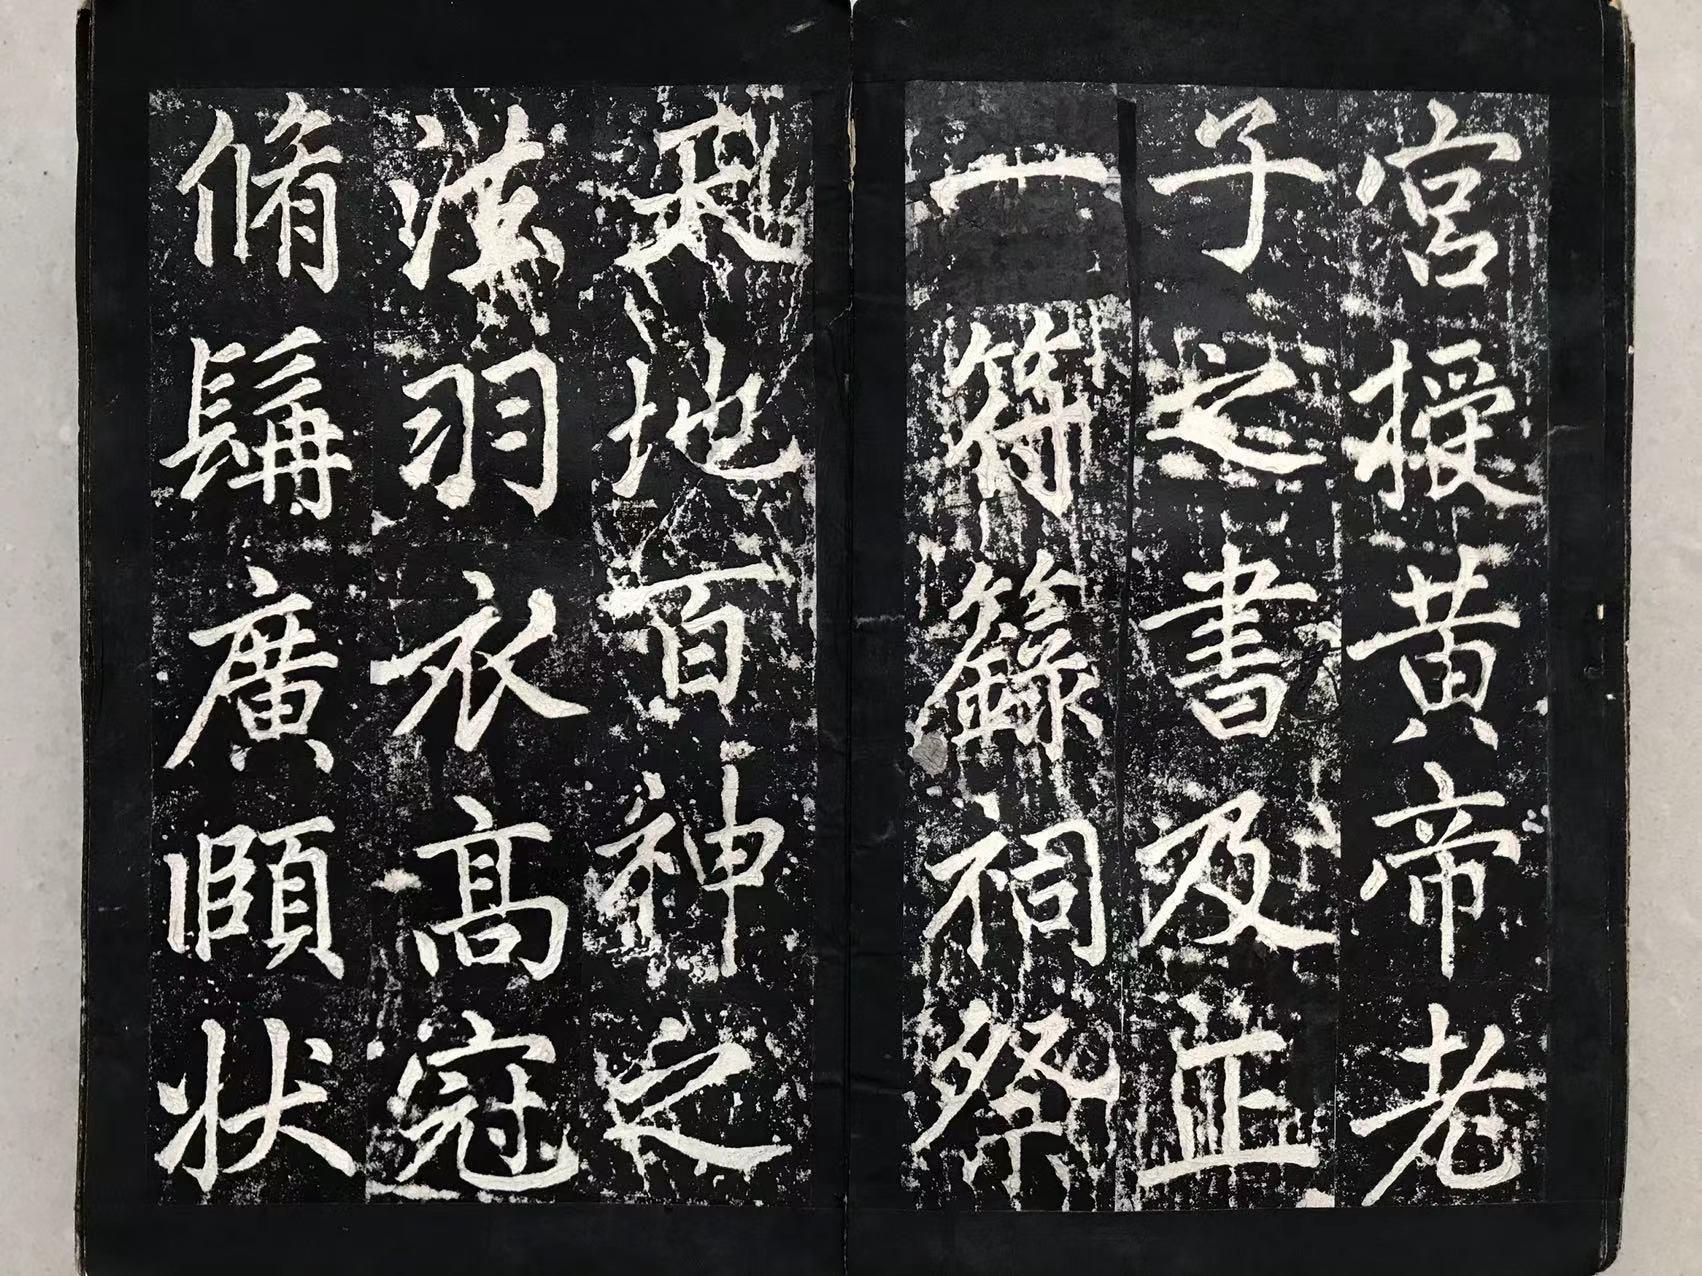 宮授黄帝老
子之書及正
一符籙祠祭
天地百神之
法羽衣高冠
脩髯廣頤狀